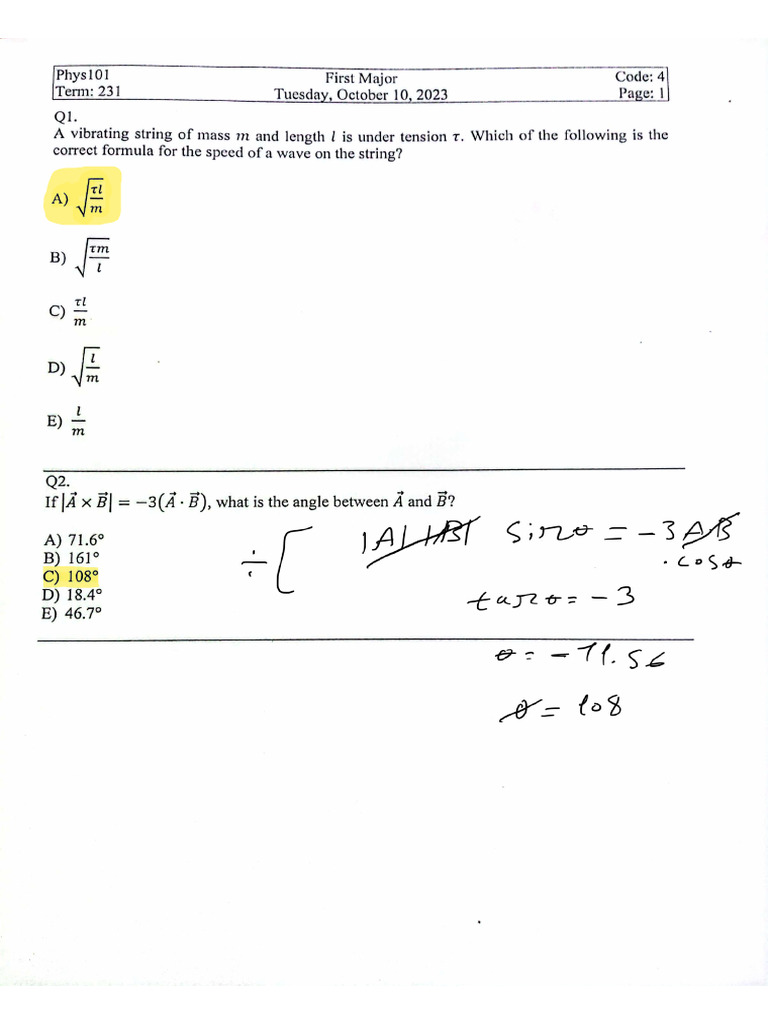 Phys101 First Major Code: 4
Term: 231 Tuesday, October 10, 2023 Page: 1
Q1.
A vibrating string of mass m and length l is under tension τ. Which of the following is the
correct formula for the speed of a wave on the string?
A) √(τl/m)
B) √(τm/l)
C) τl/m
D) √(l/m)
E) l/m
Q2.
If |A⃗ × B⃗| = −3(A⃗ · B⃗), what is the angle between A⃗ and B⃗?
A) 71.6°
B) 161°
C) 108°
D) 18.4°
E) 46.7°
÷ [ |A| |B| sinθ = -3 AB
. cosθ
tanθ = -3
θ = -71.56
θ = 108